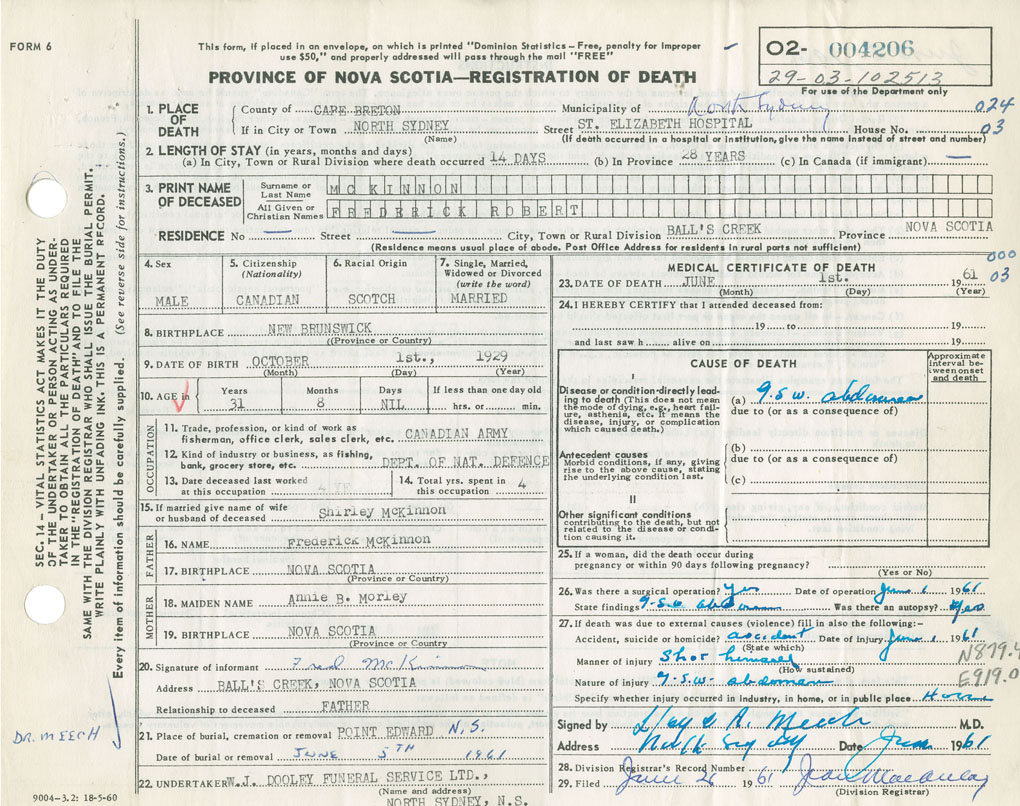 FORM 6
This form, if placed in an envelope, on which is printed "Dominion Statistics – Free, penalty for improper
use $50," and properly addressed will pass through the mail "FREE"
PROVINCE OF NOVA SCOTIA—REGISTRATION OF DEATH
O2- 004206
29-03-102513
For use of the Department only
1. PLACE OF DEATH
County of CAPE BRETON Municipality of North Sydney 024
If in City or Town NORTH SYDNEY Street ST. ELIZABETH HOSPITAL House No. 03
(Name) (If death occurred in a hospital or institution, give the name instead of street and number)
2. LENGTH OF STAY (in years, months and days)
(a) In City, Town or Rural Division where death occurred 14 DAYS (b) In Province 28 YEARS (c) In Canada (if immigrant) —
3. PRINT NAME OF DECEASED
Surname or Last Name MCKINNON
All Given or Christian Names FREDERICK ROBERT
RESIDENCE No — Street — City, Town or Rural Division BALL'S CREEK Province NOVA SCOTIA
(Residence means usual place of abode. Post Office Address for residents in rural parts not sufficient)
4. Sex
MALE
5. Citizenship
(Nationality)
CANADIAN
6. Racial Origin
SCOTCH
7. Single, Married,
Widowed or Divorced
(write the word)
MARRIED
8. BIRTHPLACE NEW BRUNSWICK
((Province or Country)
9. DATE OF BIRTH OCTOBER 1st., 1929
(Month) (Day) (Year)
10. AGE in
Years Months Days If less than one day old
31 8 NIL hrs. or min.
OCCUPATION
11. Trade, profession, or kind of work as
fisherman, office clerk, sales clerk, etc. CANADIAN ARMY
12. Kind of industry or business, as fishing,
bank, grocery store, etc. DEPT. OF NAT. DEFENCE
13. Date deceased last worked
at this occupation 4 YE
14. Total yrs. spent in
this occupation 4
15. If married give name of wife
or husband of deceased Shirley McKinnon
FATHER
16. NAME Frederick McKinnon
17. BIRTHPLACE NOVA SCOTIA
(Province or Country)
MOTHER
18. MAIDEN NAME Annie B. Morley
19. BIRTHPLACE NOVA SCOTIA
(Province or Country
20. Signature of informant Fred McKinnon
Address BALL'S CREEK, NOVA SCOTIA
Relationship to deceased FATHER
21. Place of burial, cremation or removal POINT EDWARD N.S.
Date of burial or removal JUNE 5TH 1961
22. UNDERTAKER W.J. DOOLEY FUNERAL SERVICE LTD.,
(Name and address)
NORTH SYDNEY, N.S.
MEDICAL CERTIFICATE OF DEATH
000
03
23. DATE OF DEATH JUNE 1st. 1961
(Month) (Day) (Year)
24. I HEREBY CERTIFY that I attended deceased from:
19 to 19
and last saw h alive on 19
CAUSE OF DEATH
Approximate
interval be-
tween onset
and death
I
Disease or condition directly lead-
ing to death (This does not mean
the mode of dying, e.g., heart fail-
ure, asthenia, etc. It means the
disease, injury, or complication
which caused death.)
(a) G.S.W. abdomen
due to (or as a consequence of)
Antecedent causes
Morbid conditions, if any, giving
rise to the above cause, stating
the underlying condition last.
(b)
due to (or as a consequence of)
(c)
II
Other significant conditions
contributing to the death, but not
related to the disease or condi-
tion causing it.
25. If a woman, did the death occur during
pregnancy or within 90 days following pregnancy?
(Yes or No)
26. Was there a surgical operation? Yes Date of operation June 1 1961
State findings G.S.W abdomen Was there an autopsy? Yes
27. If death was due to external causes (violence) fill in also the following:–
Accident, suicide or homicide? accident Date of injury June 1 1961
(State which)
Manner of injury Shot himself
(How sustained)
N879.4
Nature of injury G.S.W. abdomen
E919.0
Specify whether injury occurred in industry, in home, or in public place Home
Signed by Lloyd A. Meech M.D.
Address North Sydney Date June 1961
28. Division Registrar's Record Number
29. Filed June 26 1961 Jean Macaulay
(Division Registrar)
SEC. 14 – VITAL STATISTICS ACT MAKES IT THE DUTY
OF THE UNDERTAKER OR PERSON ACTING AS UNDER-
TAKER TO OBTAIN ALL THE PARTICULARS REQUIRED
IN THE "REGISTRATION OF DEATH" AND TO FILE THE
SAME WITH THE DIVISION REGISTRAR WHO SHALL ISSUE THE BURIAL PERMIT.
WRITE PLAINLY WITH UNFADING INK. THIS IS A PERMANENT RECORD.
Every item of information should be carefully supplied. (See reverse side for instructions.)
DR. MEECH
9004–3.2: 18-5-60